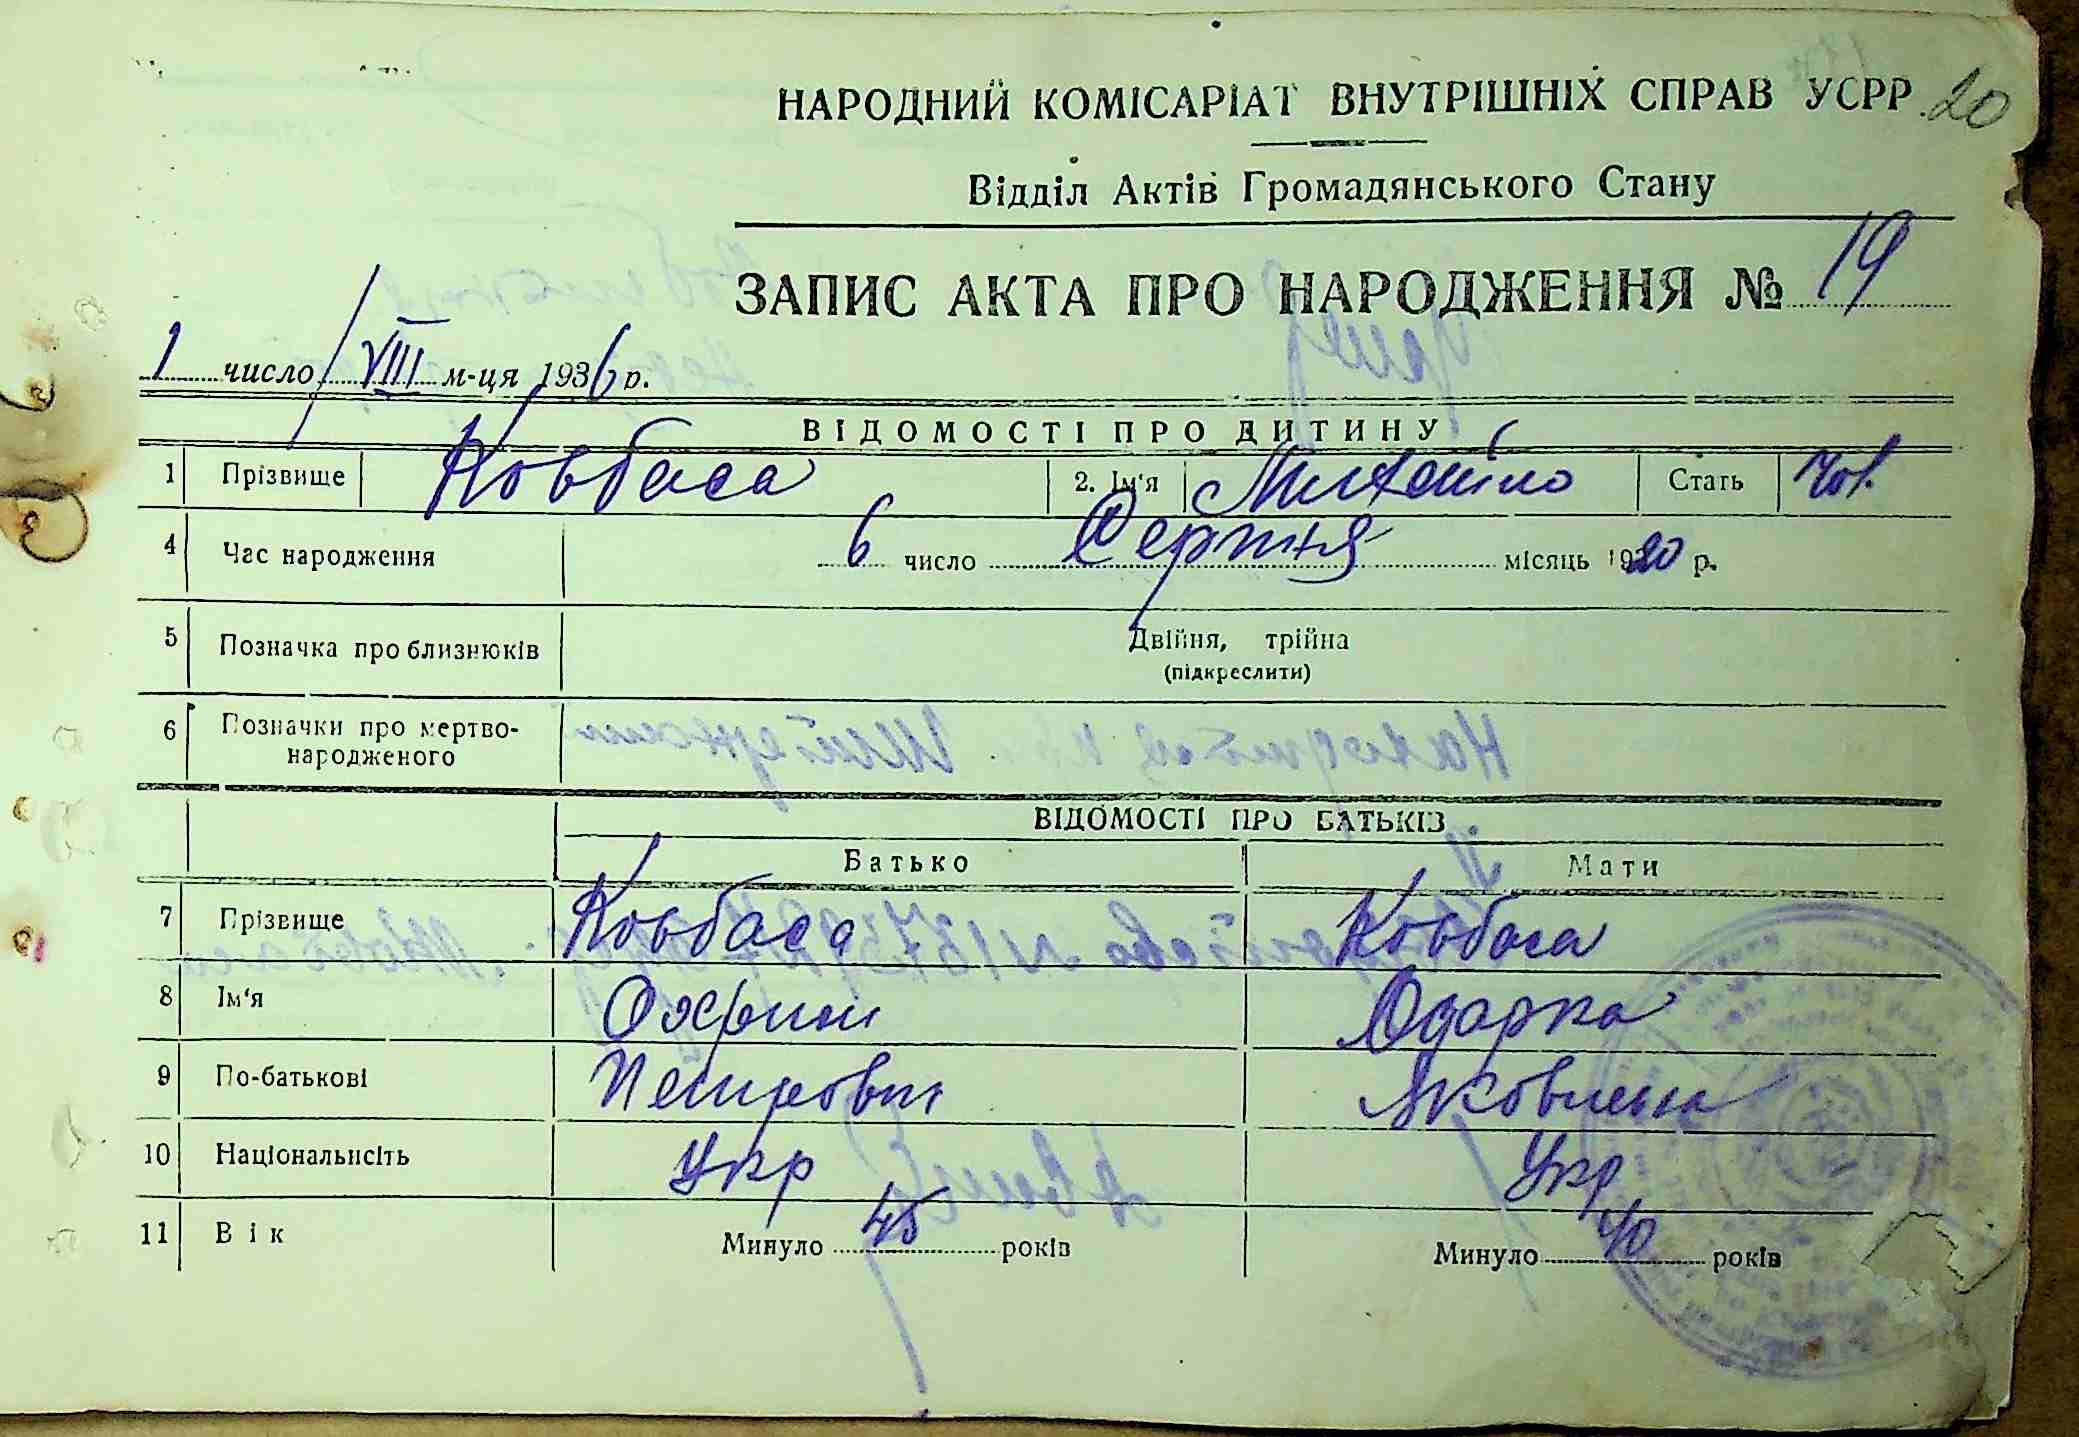 НАРОДНИЙ КОМІСАРІАТ ВНУТРІШНІХ СПРАВ УСРР 20
Відділ Актів Громадянського Стану
ЗАПИС АКТА ПРО НАРОДЖЕННЯ № 19
1 число VIII м-ця 1936 р.
ВІДОМОСТІ ПРО ДИТИНУ
1 Прізвище Ковбаса 2. Ім'я Михайло Стать Чол.
4 Час народження 6 число Серпня місяць 1920 р.
5 Позначка про близнюків Двійня, трійна
(підкреслити)
6 Позначки про мертво-
народженого
ВІДОМОСТІ ПРО БАТЬКІВ
Батько Мати
7 Прізвище Ковбаса Ковбаса
8 Ім'я Охрим Одарка
9 По-батькові Петрович Яковлевна
10 Національність Укр Укр
11 Вік Минуло 45 років Минуло 40 років